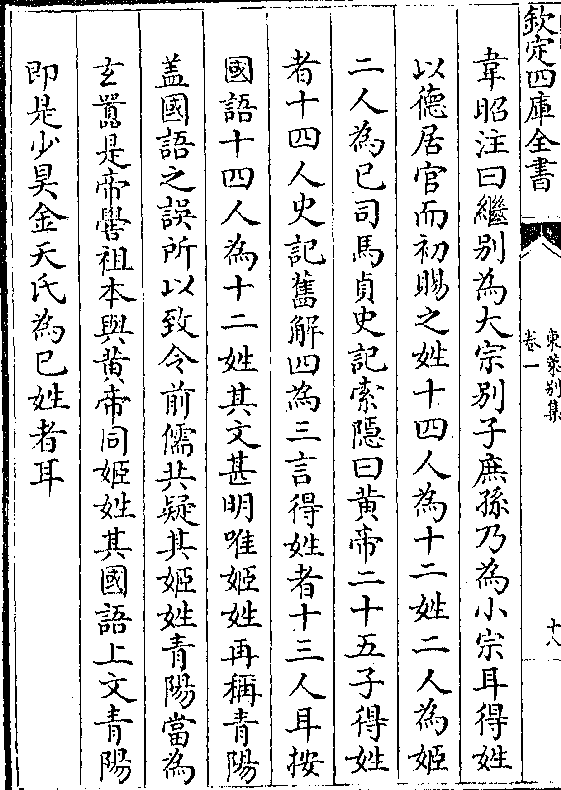 欽定四庫全書
東萊別集
卷一
十八
韋昭注曰繼别為大宗别子庶孫乃為小宗耳得姓
以德居官而初賜之姓十四人為十二姓二人為姬
二人為已司馬貞史記索隱曰黄帝二十五子得姓
者十四人史記舊解四為三言得姓者十三人耳按
國語十四人為十二姓其文甚明唯姬姓再稱青陽
盖國語之誤所以致令前儒共疑其姬姓青陽當為
玄囂是帝嚳祖本與黄帝同姬姓其國語上文青陽
即是少昊金天氏為已姓者耳